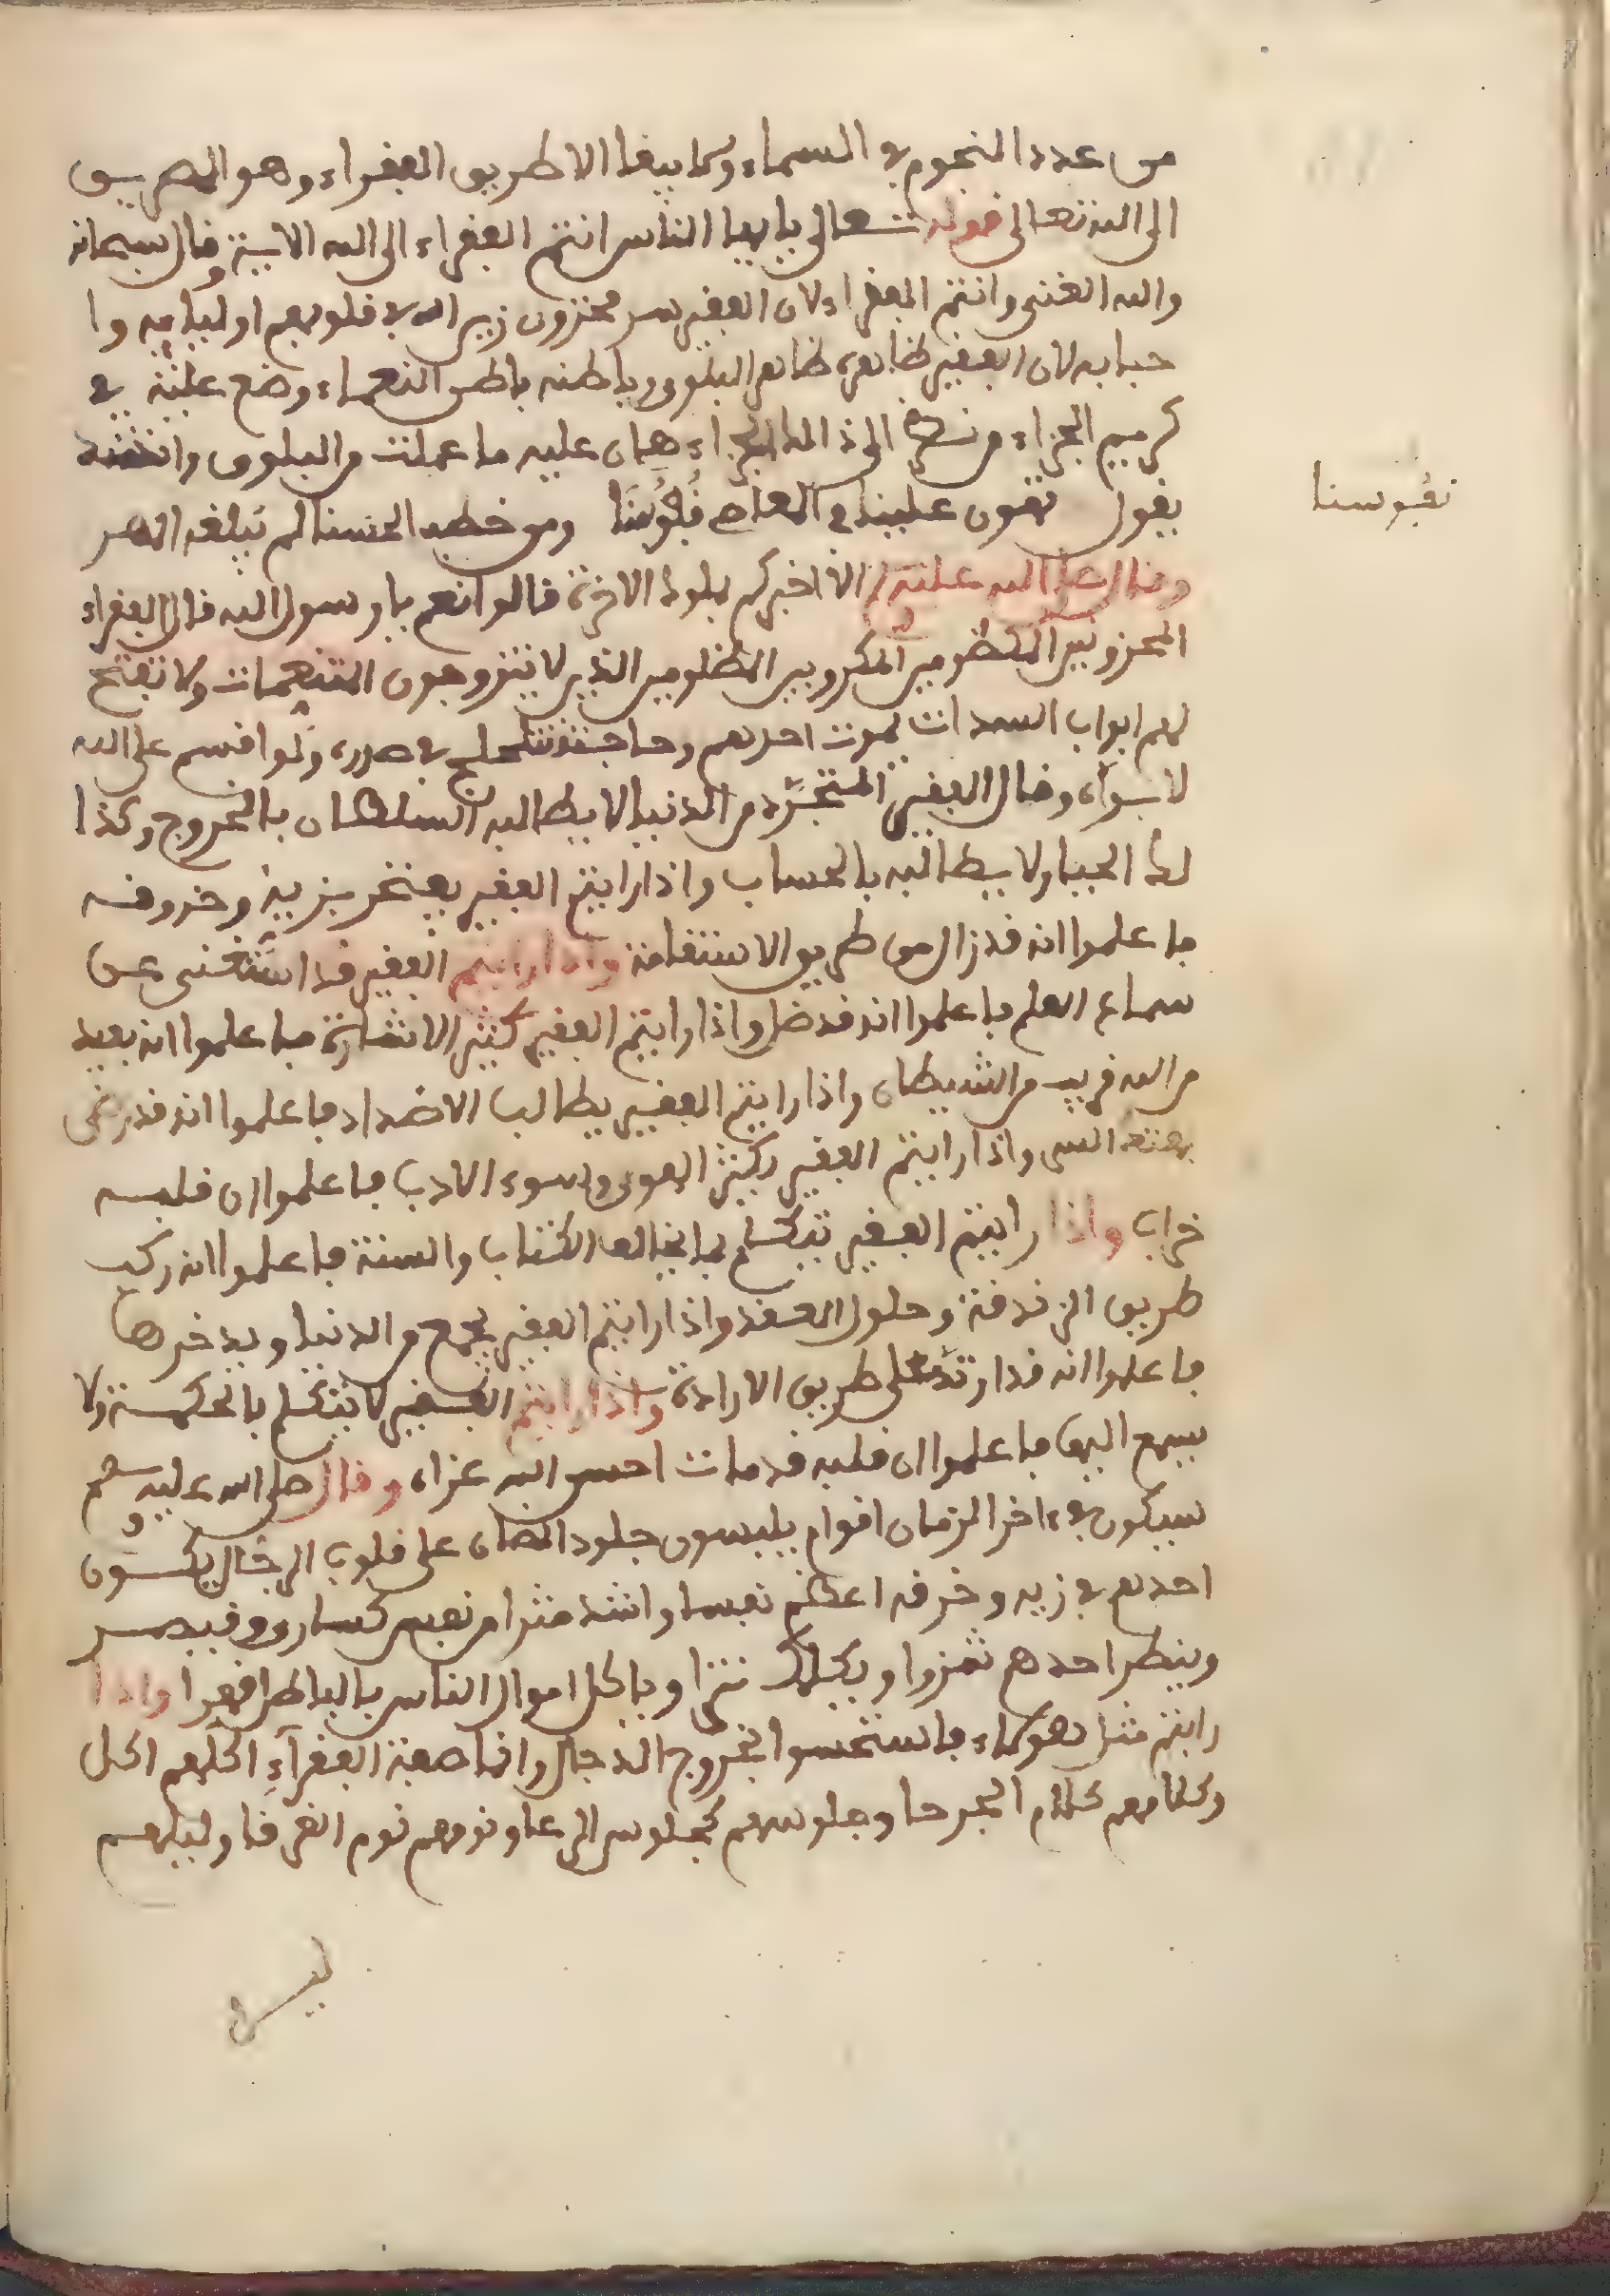 من عدد النجوم في السماء وما بيقا الا طريق الفقراء وهو الطريق
الى الله تعالى قوله تعالى يايها الناس انتم الفقراء الى الله الاية وقال سبحانه
والله الغني وانتم الفقراء لان الفقير سر مخزون زير الله في قلوبهم اوليايه وا
حبابه لان الفقير ظاهره ظاهر البلوى وباطنه باطن النعماء وضع عليه في
كريم الجزاء من نظر الى ذالك الجزاء هان عليه ما عملت من البلوى وانشد
يقول تهون علينا في المعالي نفوسنا ومن خطب الحسنا لم يبلغه المهر
نفوسنا
وقال صلى الله عليه الا اخبركم بملوك الاخرة قالوا نعم يا رسول الله قال الفقراء
المحزونين المكظومين المكروبين المظلومين الذين لا يتزوجون المتنعمات ولا تفتح
لهم ابواب السدات يموت احدهم وحاجته تتلجلج في صدره ولو اقسم على الله
لابراه وقال الفقير المتجرد من الدنيا لا يطالبه السلطان بالخروج وكذا
لك الجبار لا يطالبه بالحساب واذا رايتم الفقير يفتخر بزيه وخروفه
فاعلموا انه قد زال من طريق الاستقامة واذا رايتم الفقير قد استغنى عن
سماع العلم فاعلموا انه قد ضل واذا رايتم الفقير كثير الاشارة فاعلموا انه بعيد
من الله قريب من الشيطان واذا رايتم الفقير يطالب الاضداد فاعلموا انه قد رمى
بهتعه السى واذا رايتم الفقير يكثر الهوى وسوء الادب فاعلموا ان قلبه
خراب واذا رايتم الفقير تيكلم بما يخالف الكتاب والسنة فاعلموا انه ركب
طريق الزندقة وحلول العقد واذا رايتم الفقير يجمع من الدنيا ويدخرها
فاعلموا انه قد ارتد على طريق الارادة واذا رايتم الفقير لا يتكلم بالحكمة ولا
يسمع اليها فاعلموا ان قلبه قد مات احسن الله عزاه وقال صلى الله عليه وسلم
سيكون في ءاخر الزمان اقوام يلبسون جلود الضان على قلوب الرجال يكون
احدهم في زيه وخرقه اعظم نفسا واشد مثرا من نفس كسار وو قيصر
وينظر احدهم نمزرا ويتكلم نترا وياكل اموال الناس بالباطل فهرا واذا
رايتم مثل هولاء فاستحسوا بخروج الدجال وانما صفة الفقرآء اكلهم اكل
وكلامهم كلام الجرحا وجلوسهم كجلوس الرعا ونومهم نوم الغرقا وليلهم
ليس